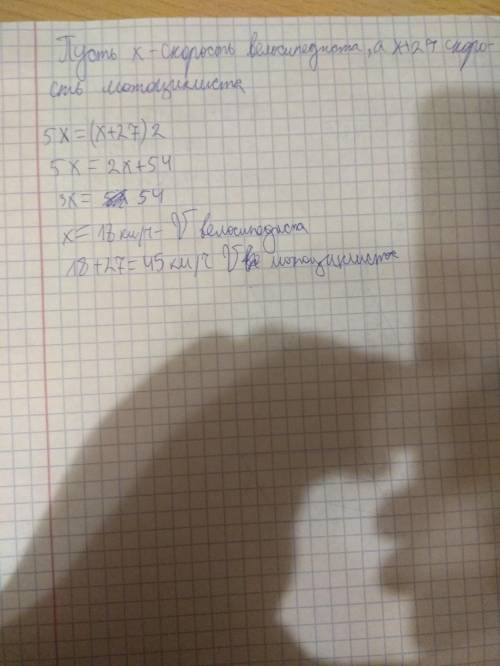 Пусть x - скорость велосипедиста, а x+27 скоро-
сть мотоциклиста
5x=(x+27)2
5x = 2x+54
3x= 54
x= 18 км/ч - V велосипедиста
18+27=45 км/ч V мотоциклиста